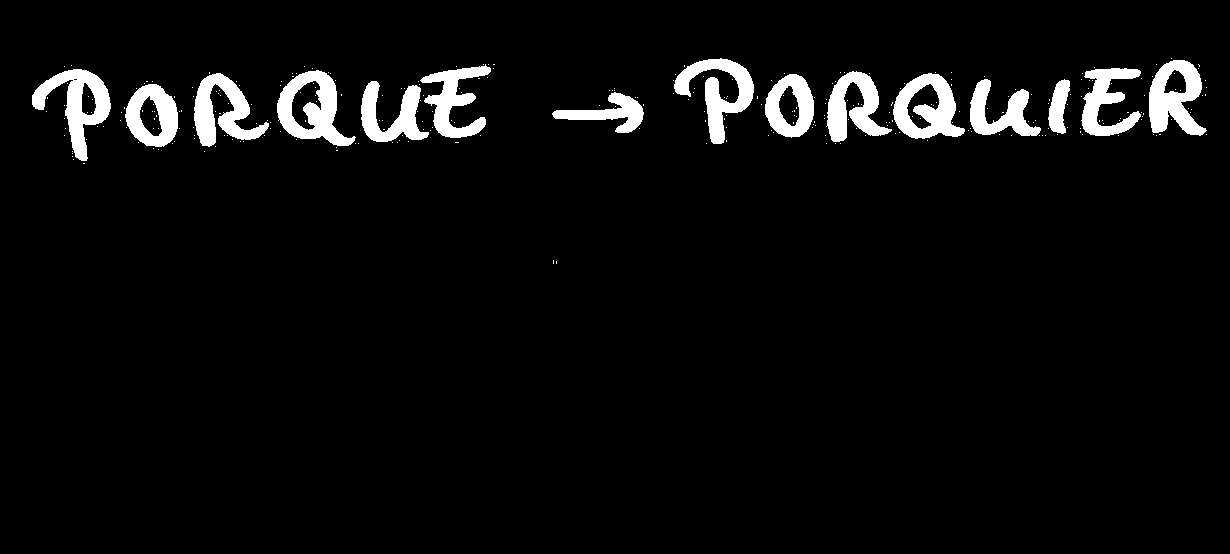 PORQUE → PORQUIER